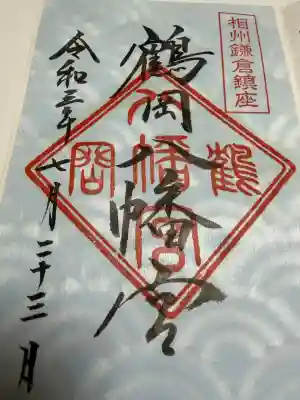 相州鎌倉鎮座
鶴岡八幡宮
令和三年七月二十三月
鶴
八幡宮
岡